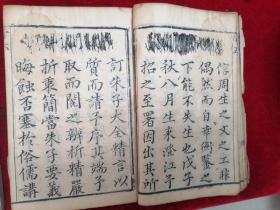 信周生之文之工非
偶然而自幸衡鑒之
下能不失生也戊子
秋八月生來澄江予
招之至署因出其所
訂朱子大全精言以
質而請予序其端予
取而閱之辨析精嚴
折衷簡當朱子要義
晦蝕否塞於俗儒講